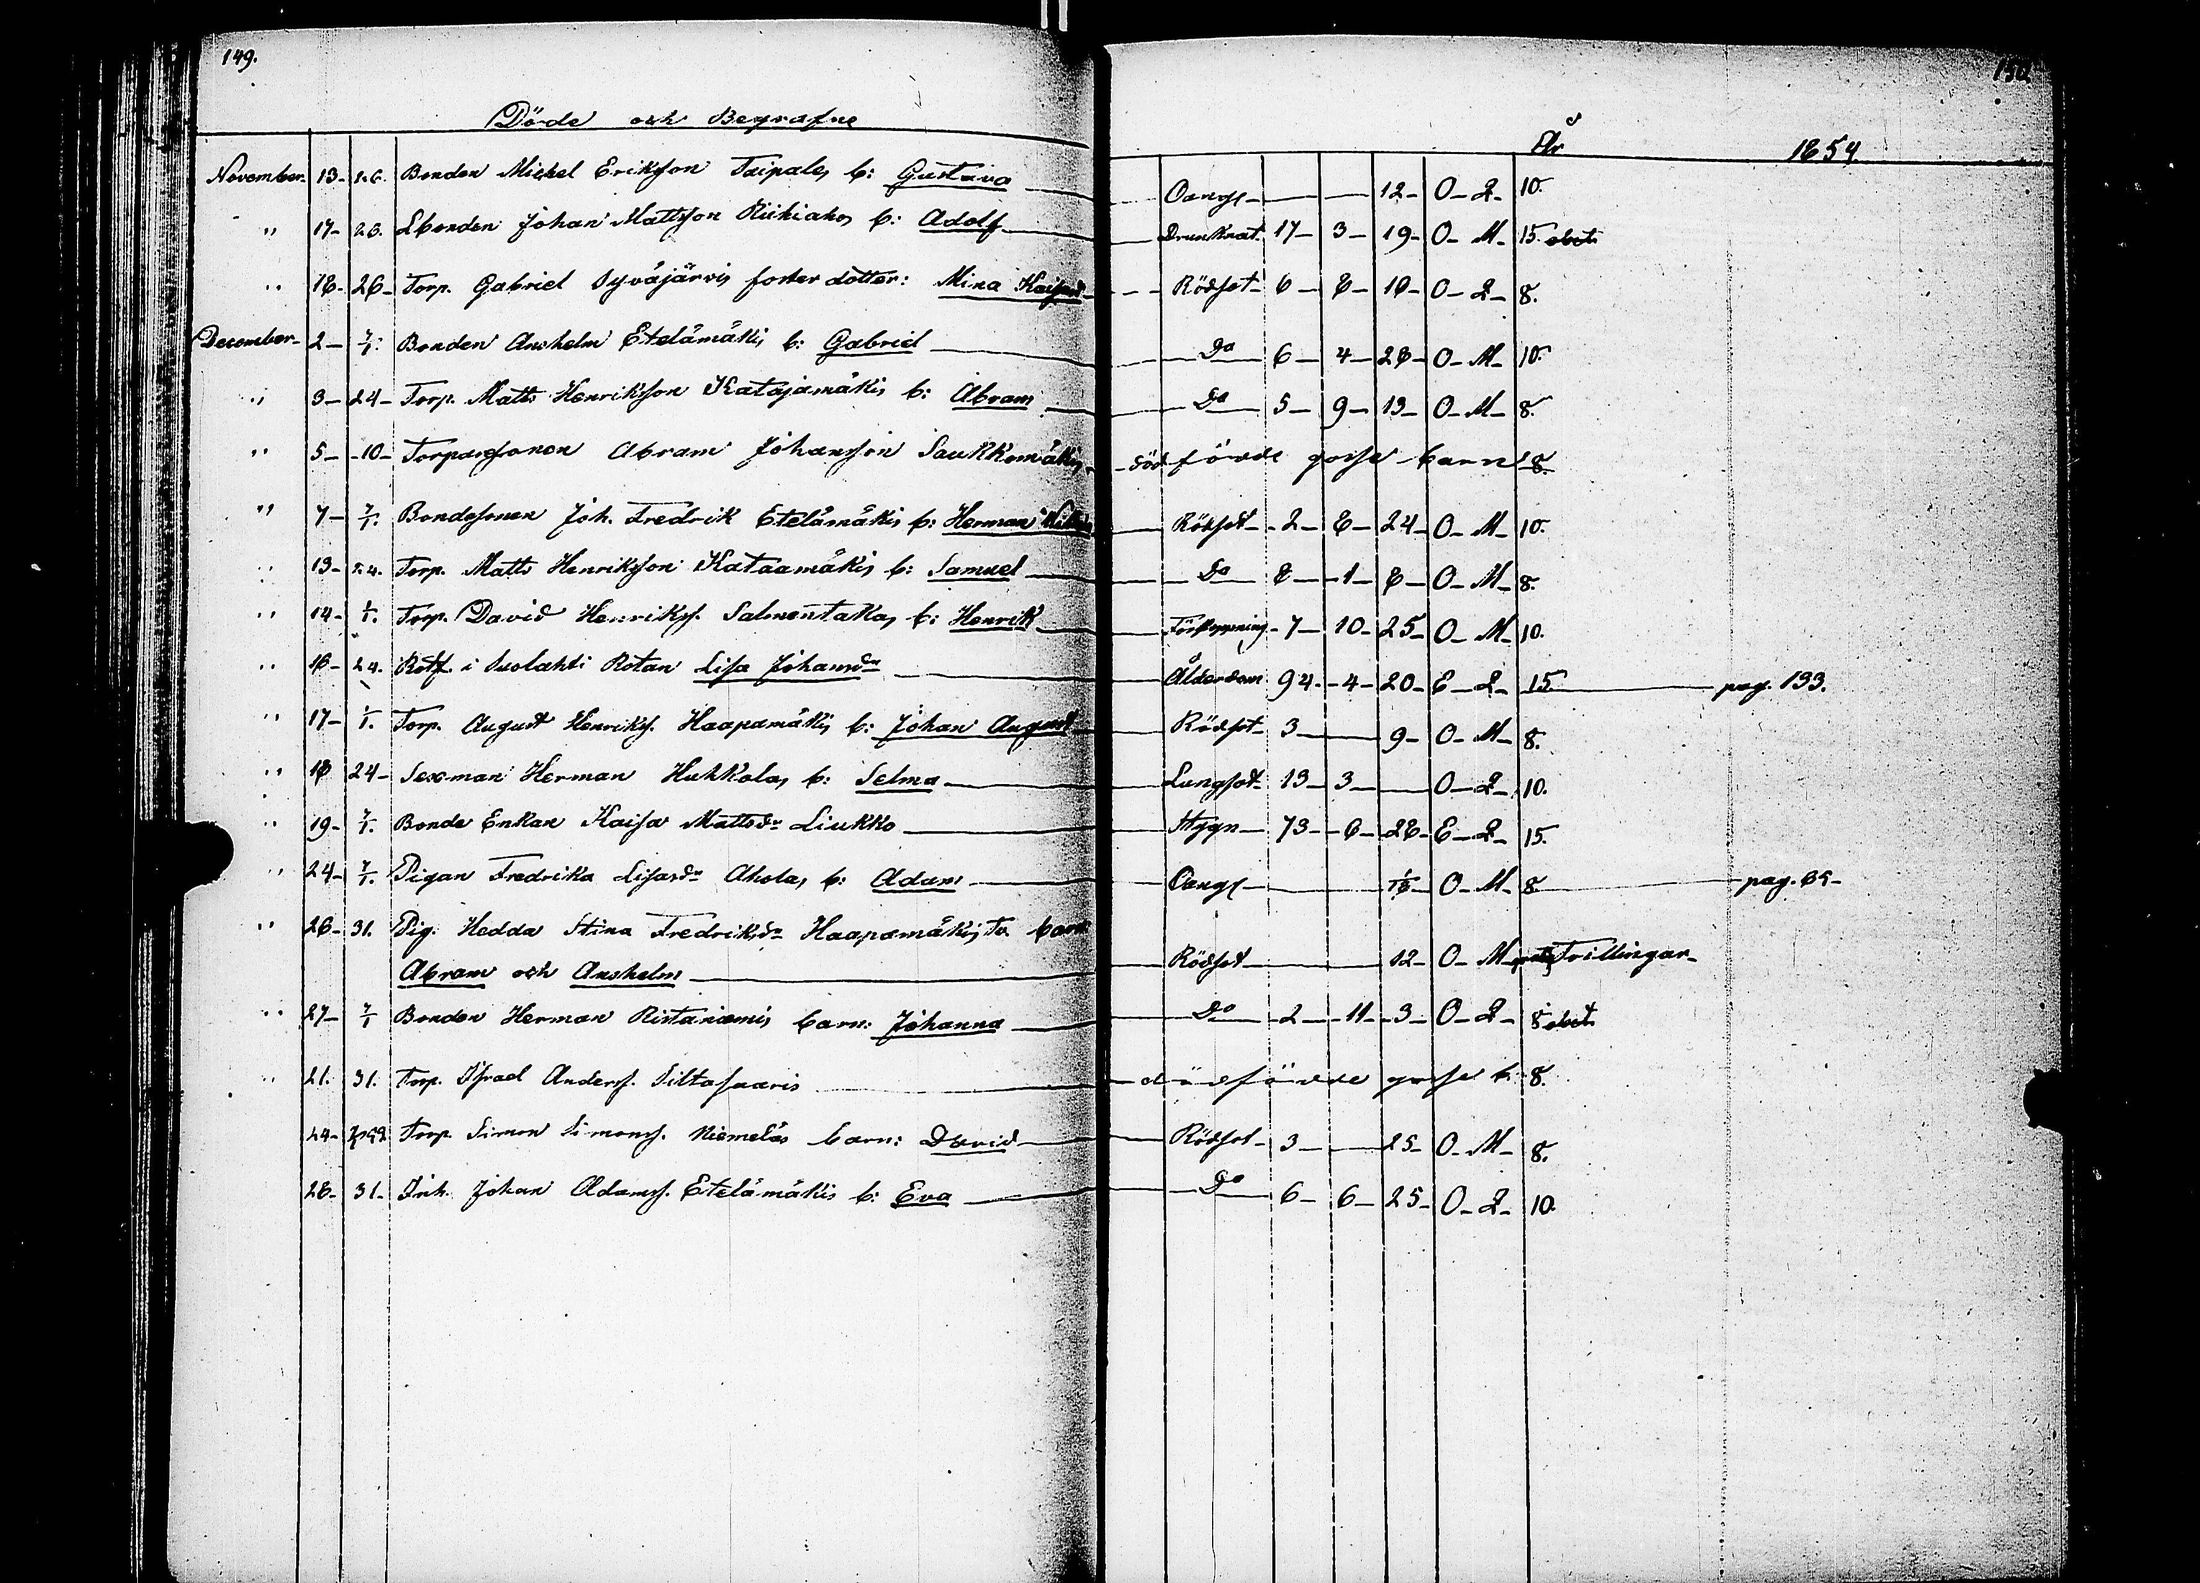 149.
150
Döde och Begrafne
År 1854
November 13- 26. Bonden Michel Eriksson Taipales b: Gustava Oangf 12- O- Q- 10.
" 17- 26. Lbonden Johan Mattsson b: Adolf Drunknat 17- 3- 19- O- M- 15.
" 18- 26- Torp. Gabriel Syväjärvis foster dotter: Mina Rödsot- 6- 8- 18- O- Q- 8.
December- 2- 7/1. Bonden Anshelm Etelämäkis b: Gabriel Do 6- 4- 28- O- M- 10.
" 3- 24- Torp. Matts Henriksson Katajamäkis b: Abram Do 5- 9- 13- O- M- 8.
" 5- 10- Torparesonen Abram Johansson Saukkomäkis dödfödde gosse barn 8.
" 7- 7/1. Bondesonen Joh. Fredrik Etelämäkis b: Herman Rödsot- 2- 8- 24- O- M- 10.
" 13- 24. Torp. Matts Henriksson Kataamäkis b: Samuel Do 8- 1- 8- O- M- 8.
" 14- 1/1. Torp. David Henrikss. Salmentakas b: Henrik Förstoppning- 7- 10- 25- O- M- 10.
" 18- 24. Rotf. i Suolahti Rotan Lisa Johansdr Ålderdom 94- 4- 20- E- Q- 15. pag. 133.
" 17- 1/1. Torp. August Henrikss. Haapamäkis b: Johan August Rödsot- 3 9- O- M- 8.
" 18 24- Sexman Herman Huhkolas b: Selma Lungsot- 13- 3- O- Q- 10.
" 19- 7/1. Bonde Enkan Kaisa Mattsdr Liukko Stygn- 73- 6- 28- E- Q- 15.
" 24- 7/1. Pigan Fredrika Lisasdr Aholas b: Adam Oangf- O- M- 8 pag. 69-
" 26- 31. Pig. Hedda Stina Fredriksdr Haapamäkis Tv. barn
Abram och Anshelm Rödsot 12- O- M- Trillingar-
" 27- 7/1 Bonden Herman Ristaniemis barn: Johanna Do 2- 11- 3- O- Q- 8
" 21. 31. Torp. Israel Anderss. Siltasaaris dödfödde gosse b. 8.
24- Torp. Simon Simonss. Niemeläs barn: David Rödsot- 3- 25- O- M- 8.
28- 31- Inh. Johan Adamss. Etelämäkis b: Eva Do 6- 6- 25- O- Q- 10.